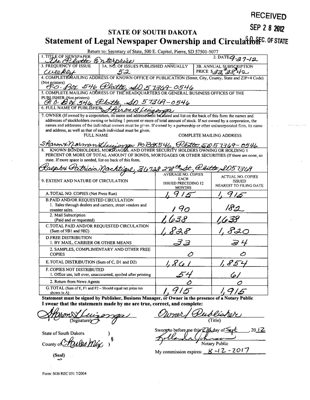 RECEIVED
SEP 28 2012
S.D. SEC. OF STATE
STATE OF SOUTH DAKOTA
Statement of Legal Newspaper Ownership and Circulation
Return to: Secretary of State, 500 E. Capitol, Pierre, SD 57501-5077
1. TITLE OF NEWSPAPER
The Platte Enterprise
2. DATE 9-27-12
3. FREQUENCY OF ISSUE
Weekly
3A. NO. OF ISSUES PUBLISHED ANNUALLY
52
3B. ANNUAL SUBSCRIPTION
PRICE
4. COMPLETE MAILING ADDRESS OF KNOWN OFFICE OF PUBLICATION (Street, City, County, State and ZIP+4 Code)
(Not printers)
P.O. Box 546 Platte, SD 57369-0546
5. COMPLETE MAILING ADDRESS OF THE HEADQUARTERS OF GENERAL BUSINESS OFFICES OF THE
PUBLISHER (Not printers)
P.O. Box 546, Platte, SD 57369-0546
6. FULL NAME OF PUBLISHER
Sharon Huizenga
7. OWNER (If owned by a corporation, its name and address must be stated and list on the back of this form the names and
addresses of stockholders owning or holding 1 percent or more of total amount of stock. If not owned by a corporation, the
names and addresses of the individual owners must be given. If owned by a partnership or other unincorporated firm, its name
and address, as well as that of each individual must be given.
FULL NAME COMPLETE MAILING ADDRESS
Sharon Huizenga PO Box 546 Platte SD 57369-0546
8. KNOWN BONDHOLDERS, MORTGAGES, AND OTHER SECURITY HOLDERS OWNING OR HOLDING 1
PERCENT OR MORE OF TOTAL AMOUNT OF BONDS, MORTGAGES OR OTHER SECURITIES (If there are none, so
state. If more space is needed, list on back of this form.
Platte SD 57369
9. EXTENT AND NATURE OF CIRCULATION
AVERAGE NO. COPIES
EACH
ISSUED PRECEDING 12
MONTHS
ACTUAL NO. COPIES
ISSUED
NEAREST TO FILING DATE
A. TOTAL NO. COPIES (Net Press Run)
1,915 1,915
B. PAID AND/OR REQUESTED CIRCULATION
1. Sales through dealers and carriers, street vendors and
counter sales
190 182
2. Mail Subscription
(Paid and or requested)
1,638 1,638
C. TOTAL PAID AND/OR REQUESTED CIRCULATION
(Sum of 9B1 and 9B2)
1,828 1,820
D. FREE DISTRIBUTION
1. BY MAIL, CARRIER OR OTHER MEANS
33 34
2. SAMPLES, COMPLIMENTARY AND OTHER FREE
COPIES
0 0
E. TOTAL DISTRIBUTION (Sum of C, D1 and D2)
1,861 1,854
F. COPIES NOT DISTRIBUTED
1. Office use, left over, unaccounted, spoiled after printing
54 61
2. Return from News Agents
0 0
G. TOTAL (Sum of E, F1 and F2 – Should equal net press run
shown in A)
1,915 1,915
Statement must be signed by Publisher, Business Manager, or Owner in the presence of a Notary Public
I swear that the statements made by me are true, correct, and complete:
Sharon Huizenga
(Signature)
Owner/Publisher
(Title)
State of South Dakota )
County of Charles Mix )
(Seal)
Sworn to before me this day of Sept, 2012
Notary Public
My commission expires 8-12-2017
Form: SOS REC 051 7/2004